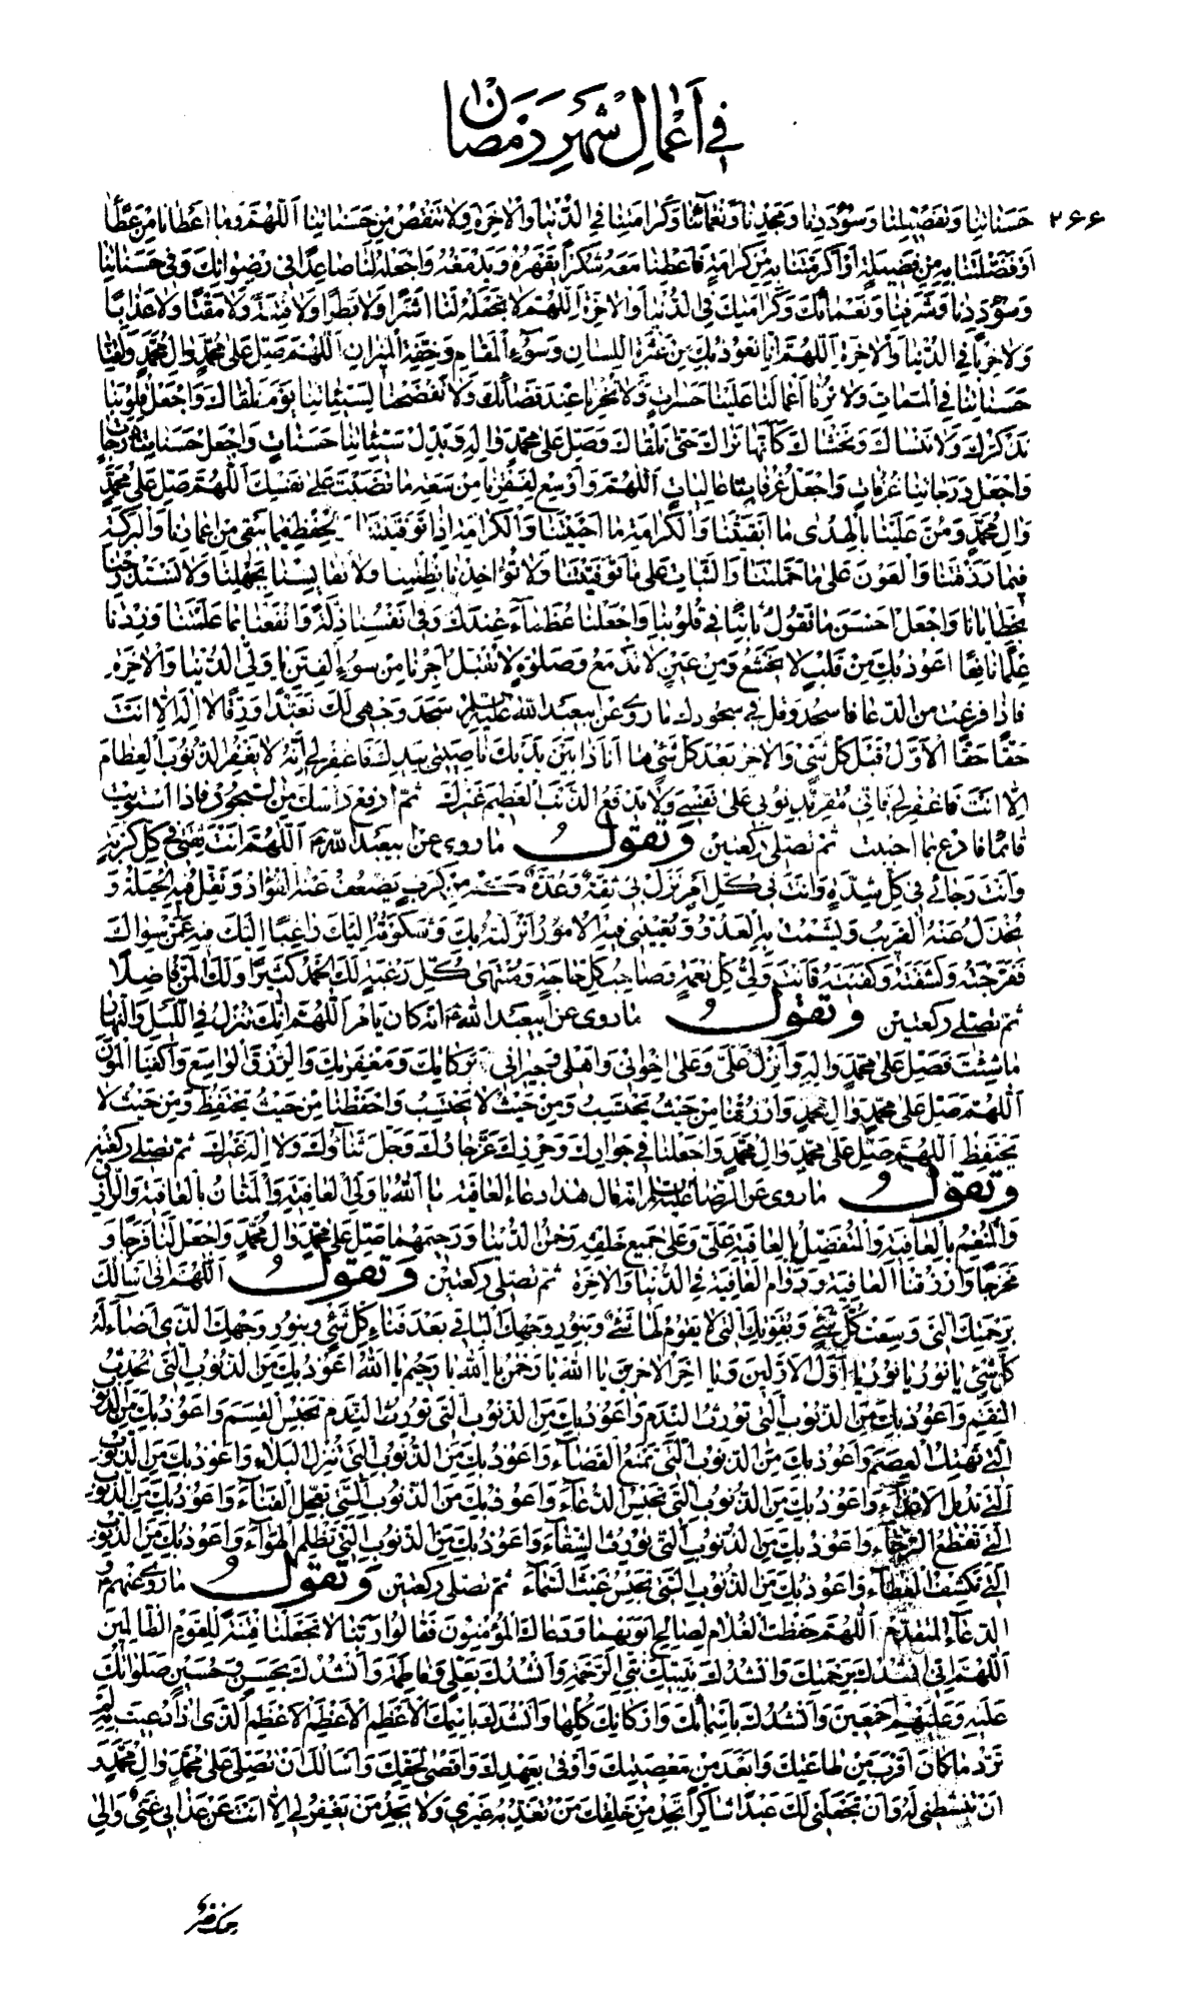 في أعمال شهر رمضان
٢٦٦
حسناتنا وتفضيلنا وسؤددنا ومجدنا ونعمائنا وكرامتنا في الدنيا والآخرة ولا تنقص من حسناتنا اللهم وما أعطانا من عطاء
أو فضلتنا به من فضيلة أو أكرمتنا به من كرامة فأعطنا معه شكرا يقهره ويدمغه واجعله لنا صاعدا في رضوانك وفي حسناتنا
وسؤددنا وشرفنا ونعمائك وكرامتك في الدنيا والآخرة اللهم لا تجعله لنا أشرا ولا بطرا ولا فتنة ولا مقتا ولا عذابا
ولا خزيا في الدنيا والآخرة اللهم إنا نعوذ بك من عثرة اللسان وسوء المقام وخفة الميزان اللهم صل على محمد وآل محمد ولقنا
حسناتنا في الممات ولا ترنا أعمالنا علينا حسرات ولا تخزنا عند قضائك ولا تفضحنا بسيئاتنا يوم نلقاك واجعل قلوبنا
تذكرك ولا تنساك وتخشاك كأنها تراك حتى تلقاك وصل على محمد وآله وبدل سيئاتنا حسنات واجعل حسناتنا درجات
واجعل درجاتنا غرفات واجعل غرفاتنا عاليات اللهم وأوسع لفقيرنا من سعة ما قضيت على نفسك اللهم صل على محمد
وآل محمد ومن علينا بالهدى ما أبقيتنا والكرامة ما أحييتنا والكرامة إذا توفيتنا والحفظ فيما بقي من عمرنا والبركة
فيما رزقتنا والعون على ما حملتنا والثبات على ما طوقتنا ولا تؤاخذنا بظلمنا ولا تقايسنا بجهلنا ولا تستدرجنا
بخطايانا واجعل أحسن ما نقول ثابتا في قلوبنا واجعلنا عظماء عندك وفي أنفسنا أذلة وانفعنا بما علمتنا وزدنا
علما نافعا أعوذ بك من قلب لا يخشع ومن عين لا تدمع وصلوة لا تقبل أجرنا من سوء الفتن يا ولي الدنيا والآخرة
فإذا فرغت من الدعاء فاسجد وقل في سجودك ما روي عن أبي عبد الله عليه السلم سجد وجهي لك تعبدا ورقا لا إله إلا أنت
حقا حقا الأول قبل كل شيء والآخر بعد كل شيء ها أنا ذا بين يديك ناصيتي بيدك فاغفر لي إنه لا يغفر الذنوب العظام
إلا أنت فاغفر لي فإني مقر بذنوبي على نفسي ولا يدفع الذنب العظيم غيرك ثم ارفع رأسك من السجود فإذا استويت
قائما فادع بما أحببت ثم تصلي ركعتين وتقول ما روي عن أبي عبد الله ع اللهم أنت ثقتي في كل كربة
وأنت رجائي في كل شدة وأنت لي في كل أمر نزل بي ثقة وعدة كم من كرب يضعف عنه الفؤاد وتقل فيه الحيلة و
يخذل عنه القريب ويشمت به العدو وتعييني فيه الأمور أنزلته بك وشكوته إليك راغبا إليك فيه عمن سواك
ففرجته وكشفته وكفيتنيه فأنت ولي كل نعمة وصاحب كل حاجة ومنتهى كل رغبة لك الحمد كثيرا ولك المن فاضلا
ثم تصلي ركعتين وتقول ما روي عن أبي عبد الله ع أنه كان يأمر اللهم إنك تنزل في الليل والنهار
ما شئت فصل على محمد وآله وأنزل علي وعلى إخواني وأهلي وجيراني بركاتك ومغفرتك والرزق الواسع واكفنا المؤن
اللهم صل على محمد وآل محمد وارزقنا من حيث نحتسب ومن حيث لا نحتسب واحفظنا من حيث نحتفظ ومن حيث لا
نحتفظ اللهم صل على محمد وآل محمد واجعلنا في جوارك وحرزك عز جارك وجل ثناؤك ولا إله غيرك ثم تصلي ركعتين
وتقول ما روي عن الرضا عليه السلم أنه قال هذا دعاء العافية يا الله يا ولي العافية والمنان بالعافية والرازق
والمنعم بالعافية والمتفضل بالعافية علي وعلى جميع خلقه رحمن الدنيا ورحيمهما صل على محمد وآل محمد واجعل لنا فرجا و
مخرجا وارزقنا العافية ودوام العافية في الدنيا والآخرة ثم تصلي ركعتين وتقول اللهم إني أسألك
برحمتك التي وسعت كل شيء وبقوتك التي لا يقوم لها شيء وبنور وجهك الباقي بعد فناء كل شيء وبنور وجهك الذي أضاء له
كل شيء يا نور يا نور يا أول الأولين ويا آخر الآخرين يا الله يا رحمن يا الله يا رحيم يا الله أعوذ بك من الذنوب التي تحدث
النقم وأعوذ بك من الذنوب التي تورث الندم وأعوذ بك من الذنوب التي تورث الندم تحبس القسم وأعوذ بك من الذنوب
التي تهتك العصم وأعوذ بك من الذنوب التي تمنع القضاء وأعوذ بك من الذنوب التي تنزل البلاء وأعوذ بك من الذنوب
التي تديل الأعداء وأعوذ بك من الذنوب التي تحبس الدعاء وأعوذ بك من الذنوب التي تعجل الفناء وأعوذ بك من الذنوب
التي تقطع الرجاء وأعوذ بك من الذنوب التي تورث الشقاء وأعوذ بك من الذنوب التي تظلم الهواء وأعوذ بك من الذنوب
التي تكشف الغطاء وأعوذ بك من الذنوب التي تحبس غيث السماء ثم تصلي ركعتين وتقول ما روي عنهم ع
الدعاء المتقدم اللهم حفظت الغلام لصلاح أبويهما ودعاك المؤمنون فقالوا ربنا لا تجعلنا فتنة للقوم الظالمين
اللهم إني أنشدك برحمتك وأنشدك بنبيك نبي الرحمة وأنشدك بعلي وفاطمة وأنشدك بحسن وحسين صلواتك
عليه وعليهم أجمعين وأنشدك بأسمائك وأركانك كلها وأنشدك باسمك الأعظم الأعظم الأعظم الذي إذا دعيت به لم
ترد ما كان أقرب من طاعتك وأبعد من معصيتك وأوفى بعهدك وأقضى لحقك وأسألك أن تصلي على محمد وآل محمد و
أن تنشطني له وأن تجعلني لك عبدا شاكرا تجد من خلقك من تعذبه غيري ولا أجد من يغفر لي إلا أنت عن عذابي غني وإلي